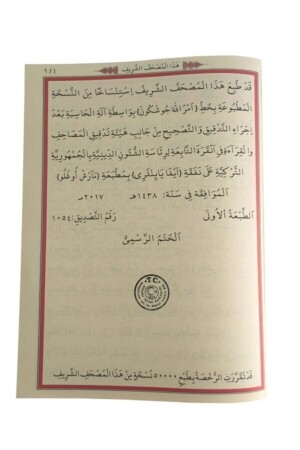 هٰذَا الْمُصْحَفُ الشَّرِيفُ
قَدْ طُبِعَ هٰذَا الْمُصْحَفُ الشَّرِيفُ اِسْتِنْسَاخًا مِنَ النُّسْخَةِ
الْمَطْبُوعَةِ بِخَطِّ (اَمْرُ اللّٰهِ جُوشْكُونْ) بِوَاسِطَةِ اٰلَةِ الْحَاسِبَةِ بَعْدَ
اِجْرَاءِ التَّدْقِيقِ وَالتَّصْحِيحِ مِنْ جَانِبِ هَيْئَةِ تَدْقِيقِ الْمَصَاحِفِ
وَالْقِرَاءَةِ فِي اَنْقَرَةَ التَّابِعَةِ لِرِئَاسَةِ الشُّئُونِ الدِّينِيَّةِ بِالْجُمْهُورِيَّةِ
التُّرْكِيَّةِ عَلٰى نَفَقَةِ (اَيْفَا يَايِنْلَرِي) بِمَطْبَعَةِ (مَارْشْ اُوغْلُو)
الْمُوَافِقَةِ فِي سَنَةِ: ١٤٣٨هـ ٢٠١٧مـ
الطَّبْعَةُ الْاُولٰى رَقْمُ التَّصْدِيقِ: ١٠٥٤
الْخَتْمُ الرَّسْمِيُّ
T.C.
قَدْ تَقَرَّرَتِ الرُّخْصَةُ بِطَبْعِ ٥٠٠٠٠ نُسْخَةٍ مِنْ هٰذَا الْمُصْحَفِ الشَّرِيفِ